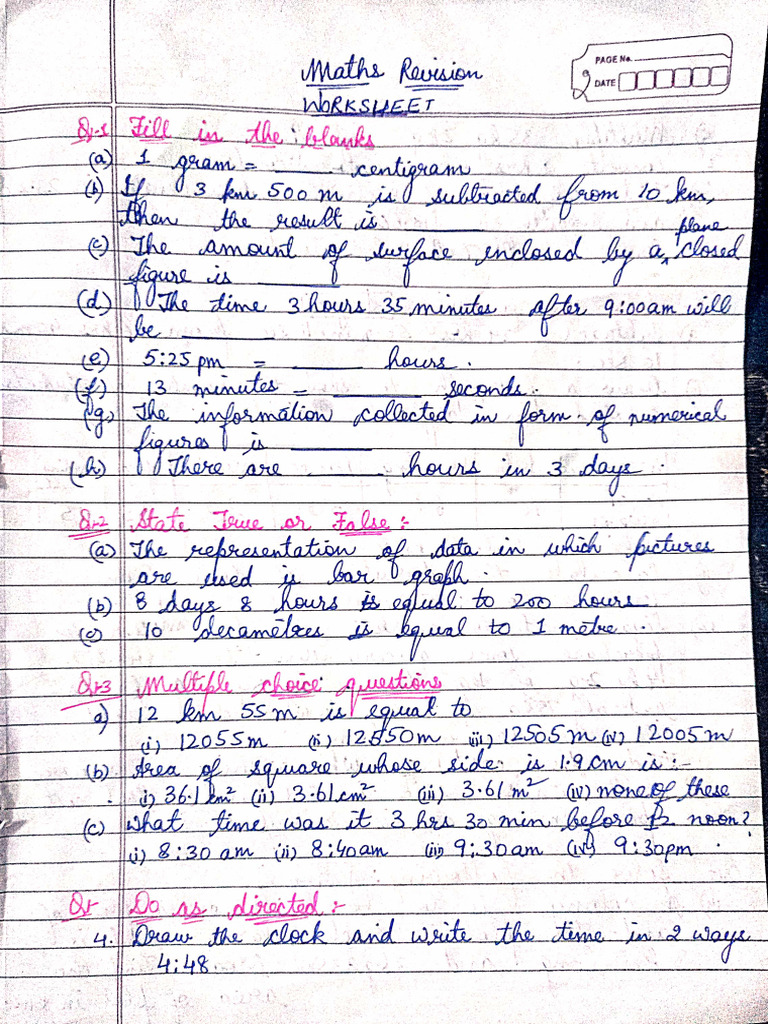 Maths Revision
WORKSHEET
PAGE No.
DATE
Qr-1 Fill in the blanks
(a) 1 gram = ______ centigram
(b) If 3 km 500 m is subtracted from 10 km,
then the result is ______
(c) The amount of surface enclosed by a plane closed
figure is ______
(d) The time 3 hours 35 minutes after 9:00am will
be ______
(e) 5:25 pm = ______ hours.
(f) 13 minutes = ______ seconds.
(g) The information collected in form of numerical
figures is ______
(h) There are ______ hours in 3 days.
Qr-2 State True or False:-
(a) The representation of data in which pictures
are used is bar graph.
(b) 8 days 8 hours is equal to 200 hours
(c) 10 decametres is equal to 1 metre.
Qr-3 Multiple choice questions
a) 12 km 55 m is equal to
(i) 12055m (ii) 12550m (iii) 12505m (iv) 12005m
(b) Area of square whose side is 1.9 cm is:-
i) 36.1 km² (ii) 3.61cm² (iii) 3.61 m² (iv) none of these
(c) What time was it 3 hrs 30 min before 12 noon?
(i) 8:30 am (ii) 8:40am (iii) 9:30am (iv) 9:30pm
Qr Do as directed:-
4. Draw the clock and write the time in 2 ways
4:48